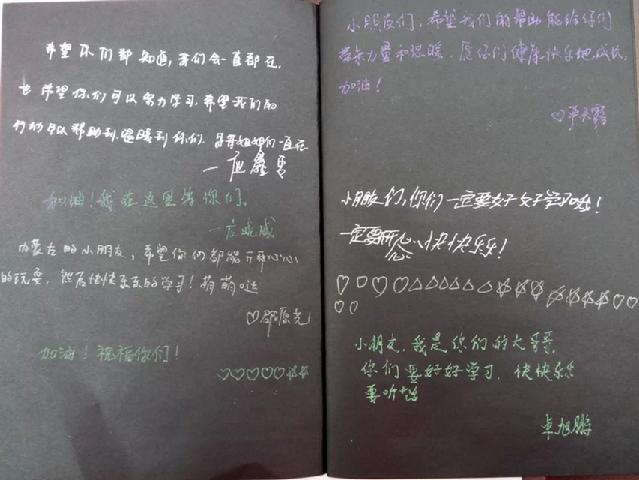 希望你们都知道，哥们会一直都在，
也希望你们可以努力学习，希望我们的
行动可以帮助到温暖到你们。哥哥姐姐们一直在
加油！我在这里等你们。
内蒙古的小朋友，希望你们都能开开心心
的玩耍，然后快快乐乐的学习！萌萌哒
♡邵原先
加油！祝福你们！
♡♡♡♡♡☆☆
小朋友们，希望我们的帮助能给你们
带来力量和温暖，愿你们健康快乐地成长，
加油！
小朋友们，你们一定要好好学习哦！
一定要开心，快快乐乐！
小朋友，我是你们的大哥哥，
你们要好好学习，快快乐乐
要听话
卓旭鹏